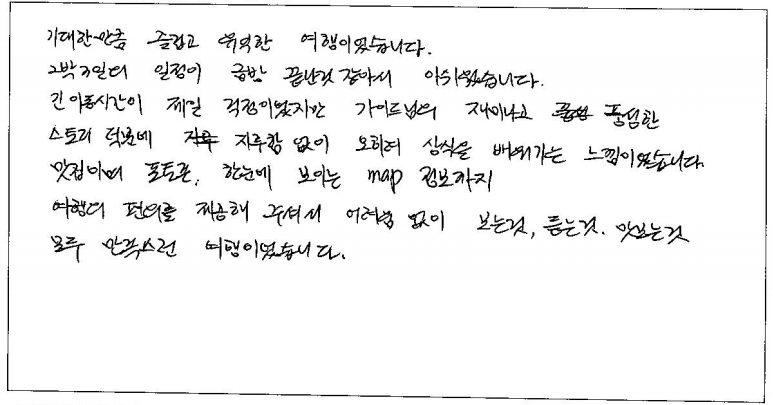 기대한만큼 즐겁고 유익한 여행이었습니다.
2박3일의 일정이 금방 끝난것 같아서 아쉬웠습니다.
긴 이동시간이 제일 걱정이었지만 가이드님의 재미나고 풍성한
스토리 덕분에 지루함 없이 오히려 상식을 배워가는 느낌이었습니다.
맛집이며 포토존, 한눈에 보이는 map 정보까지
여행의 편의를 제공해 주셔서 어려움 없이 보는것, 듣는것, 맛보는것
모두 만족스런 여행이었습니다.